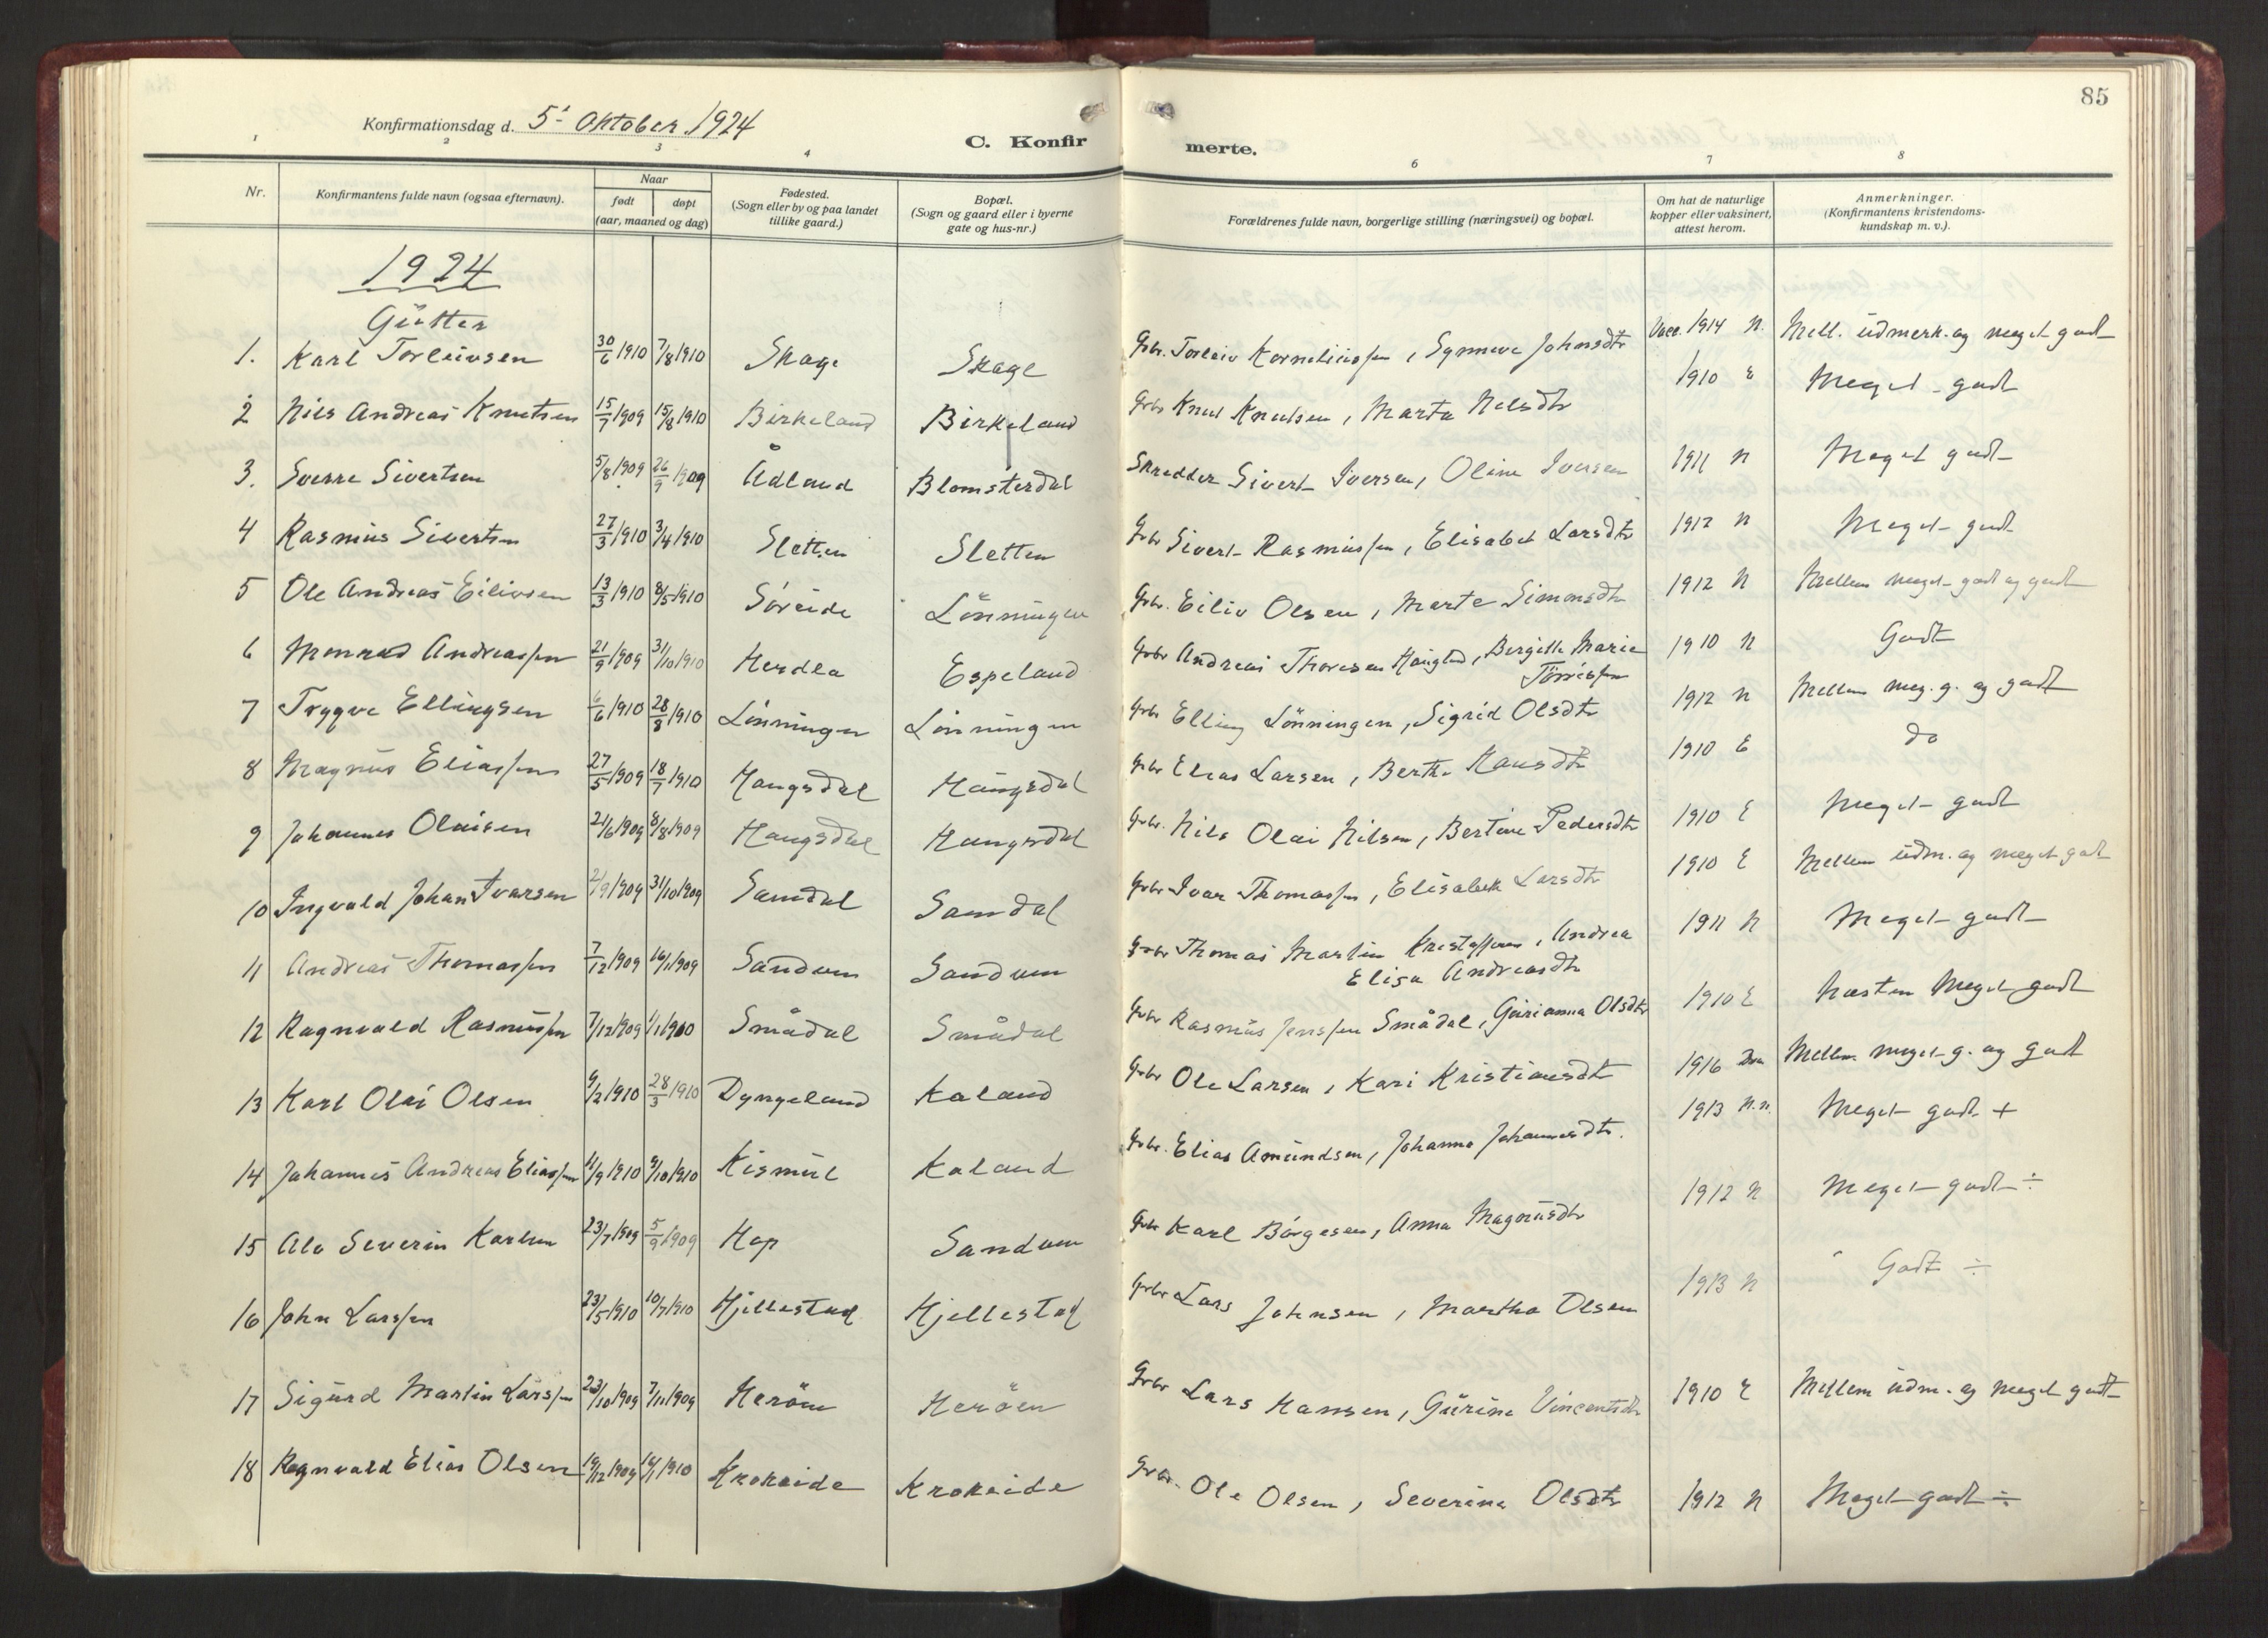 85
Konfirmationsdag d. 5' Oktober 1924
C. Konfir merte.
1 2 3 4 6 7 8
Nr. | Konfirmantens fulde navn (ogsaa efternavn). | Naar født døpt (aar, maaned og dag) | Fødested. (Sogn eller by og paa landet tillike gaard.) | Bopæl. (Sogn og gaard eller i byerne gate og hus-nr.) | Forældrenes fulde navn, borgerlige stilling (næringsvei) og bopæl. | Om hat de naturlige kopper eller vaksinert, attest herom. | Anmerkninger. (Konfirmantens kristendoms-kundskap m. v.).
1924
Gutter
1. Karl Torleivsen 30/6 1910 7/8 1910 Skage Skage Grbr. Torleiv Korneliussen, Synneve Johnsdtr Vacc. 1914 N. Mell. udmerk. og meget godt
2 Nils Andreas Knutsen 15/7 1909 15/8 1910 Birkeland Birkeland Grbr Knut Knutsen, Marta Nelsdtr 1910 E Meget godt
3. Sverre Sivertsen 5/8 1909 26/9 1909 Ådland Blomsterdal Skredder Sivert Iversen, Oline Iversen 1911 N Meget godt
4 Rasmus Sivertsen 27/3 1910 3/4 1910 Sletten Sletten Grbr Sivert Rasmussen, Elisabet Larsdtr 1912 N Meget godt
5 Ole Andreas Eilivsen 13/3 1910 8/5 1910 Söreide Lönningen Grbr. Eiliv Olsen, Marte Simonsdtr 1912 N Mellem meget godt og godt
6 Monrad Andreassen 21/9 1909 31/10 1910 Herdla Espeland Grbr Andreas Thoresen Haugland, Bergitte Marie Törrissen 1910 N Godt
7 Trygve Ellingsen 6/6 1910 28/8 1910 Lönningen Lönningen Grbr Elling Lönningen, Sigrid Olsdtr 1912 N Mellem meg. g. og godt
8 Magnus Eliassen 27/5 1909 18/7 1910 Haugsdal Haugsdal Grbr Elias Larsen, Berthe Hansdtr 1910 E do
9 Johannes Olaisen 21/6 1909 8/8 1909 Haugsdal Haugsdal Grbr. Nils Olai Nilsen, Bertine Pedersdtr 1910 E Meget godt
10 Ingvald Johan Ivarsen 2/9 1909 31/10 1909 Samdal Samdal Grbr Ivar Thomassen, Elisabeth Larsdtr 1910 E Mellem udm. og meget godt
11 Andreas Thomassen 7/12 1909 16/1 1909 Sandven Sandven Grbr Thomas Martin Kristoffersen, Andrea Elisa Andreasdtr 1911 N Meget godt
12 Ragnvald Rasmussen 7/12 1909 1/1 1910 Smådal Smådal Grbr Rasmus Jenssen Smådal, Gurianna Olsdtr 1910 E Næsten Meget godt
13 Karl Olai Olsen 9/2 1910 28/3 1910 Dyngeland Kaland Grbr Ole Larsen, Kari Kristiansdtr 1916 Mellem meget g. og godt
14 Johannes Andreas Eliassen 11/9 1910 9/10 1910 Kismul Kaland Grbr. Elias Amundsen, Johanna Johannesdtr. 1913 N.N. Meget godt +
15 Alv Severin Karlsen 23/7 1909 5/9 1909 Hop Sandven Grbr Karl Börgesen, Anna Magnusdtr 1912 N Meget godt ÷
16 John Larssen 23/5 1910 10/7 1910 Hjellestad Hjellestad Grbr Lars Johnsen, Martha Olsen 1913 N Godt ÷
17 Sigurd Martin Larssen 23/10 1909 7/11 1909 Heröen Heröen Grbr Lars Hansen, Gurine Vincentsdtr 1910 E Mellem udm. og meget godt
18 Ragnvald Elias Olsen 19/12 1909 16/1 1910 Krokeide Krokeide Grbr. Ole Olsen, Severine Olsdtr 1912 N Meget godt ÷